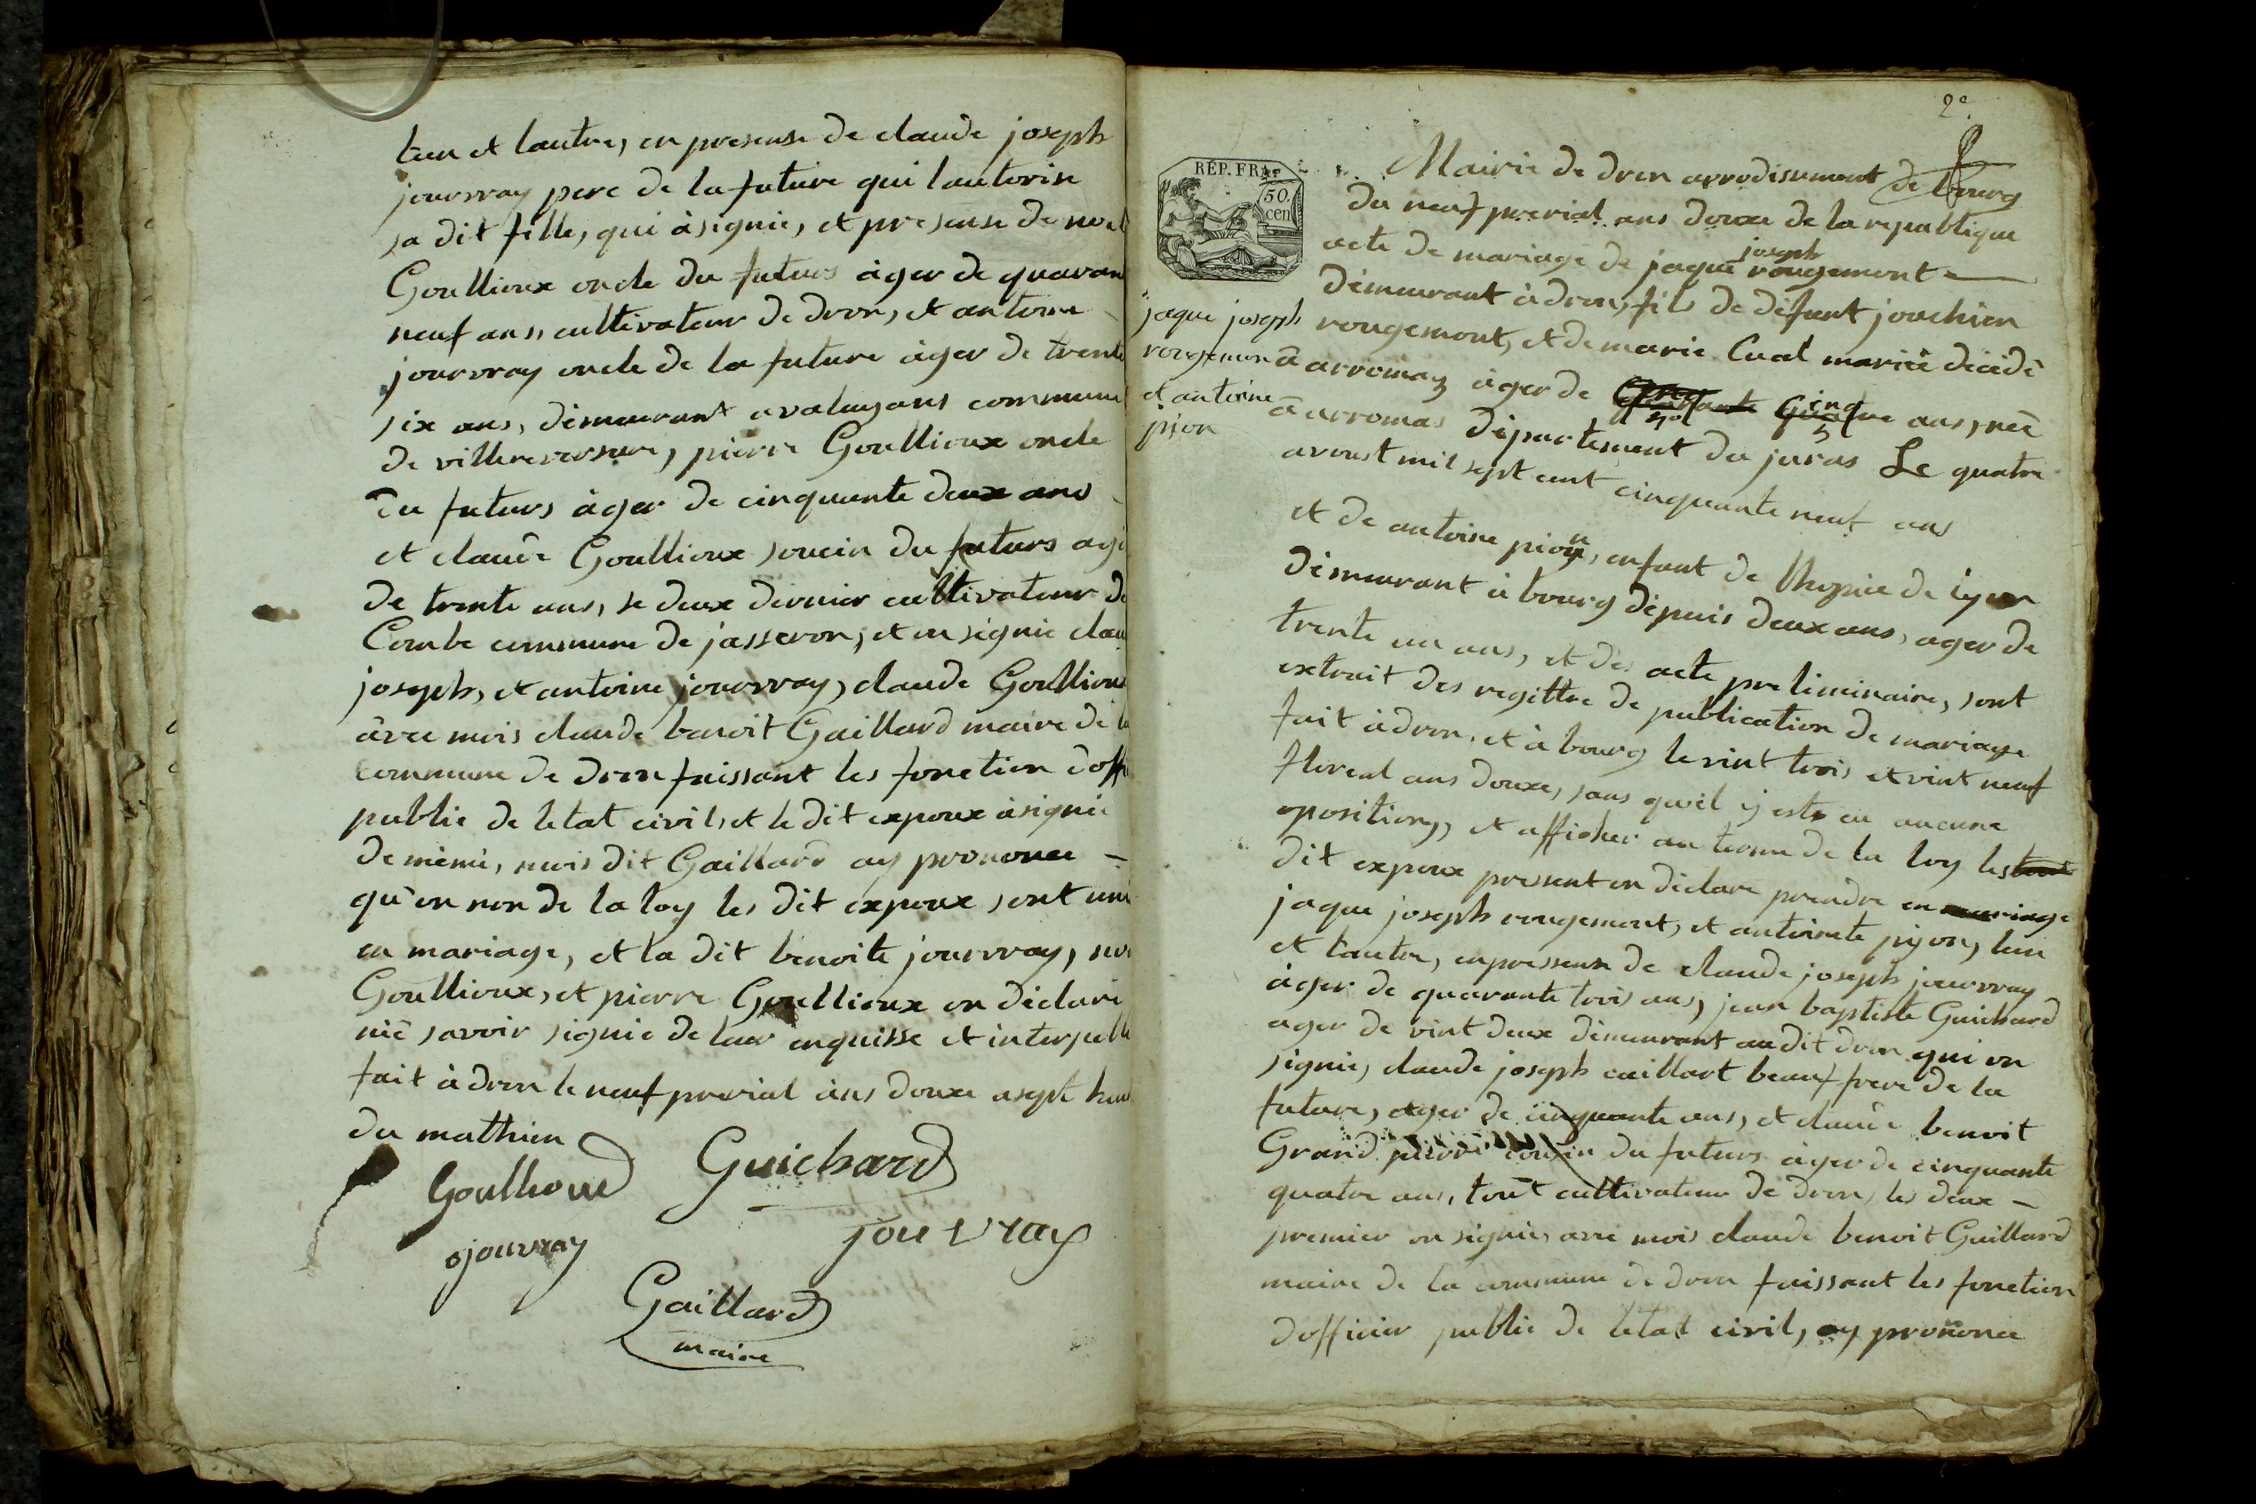 lun et lautre, en presense de claude joseph
jourvray pere de la future qui lautorise
sa dit fille, qui à signie, et presense de noel
Goullioux oncle du futurs àger de quaran
neuf ans, cultivateur de dron, et antoine
jourvray oncle de la future àger de trente
six ans, dèmeurant commune
de villereversure, pierre Goullioux oncle
du futurs àger de cinquante deux ans
et claude Goullioux cousin du futurs agé
de trente ans, le deux dernier cultivateur de
Combe commune de jasseron, et on signie clau
joseph, et antoine jourvray, claude Goullioux
àvec mois claude benoit Gaillard maire de la
commune de dron faissant les fonction doffi
public de letat civil, et le dit expoux àsignie
de mème, mois dit Gaillard ay prononce
qu'on non de la loy les dit expoux sont uni
en mariage, et la dit benoite jourvray,
Goullioux, et pierre Goullioux on déclare
niè savoir signie de leur enquisse et interpelle
fait à dron le neuf prerial àns douxe asept heur
du mathien
Goullioud Guichard
jouvray jouvray
Gaillard
maire
2e
RÉP. FRA.
50.
cen
Mairie de dron arrodisement de bourg
du neuf prerial ans douxe de la republique
acte de mariage de jaque joseph rougemont
demeurant à dron, fils de défunt jouchien
jaque joseph
rougemon
et antoine
pijon
rougemont, et de marie Cual marièe décédè
à arromaz àger de cinq ans, neè
à arromas département du juras Le quatre
avoust mil sept cent cinquante neuf ans
et de antoine pion, enfant de lhopice de lyon
dèmeurant à bourg dépuis deux ans, ager de
trente un ans, et des acte preliminaire, sont
extrait des regittre de publication de mariage
fait à dron, et à bourg le vint trois et vint neuf
floreal ans douxe, sans qu'il y este eu aucune
opositiong, et afficher au terme de la loy les
dit expoux present on déclare prendre en mariage
jaque joseph rougemont, et antoinete pijon, lun
et lautre, enpressense de claude joseph jourvray
àger de quarante trois ans, jean baptiste Guichard
ager de vint deux dèmeurant audit dron qui on
signie, claude joseph caillart beauf frere de la
future, ager de cinquante ans, et claude benoit
Grand pierre cousin du futurs àger de cinquante
quatre ans, tout cultivateur de dron, les deux
premier on signie, avec mois claude benoit Gaillard
maire de la commune de dron faissant les fonction
dofficier public de letat civil, ay prononce